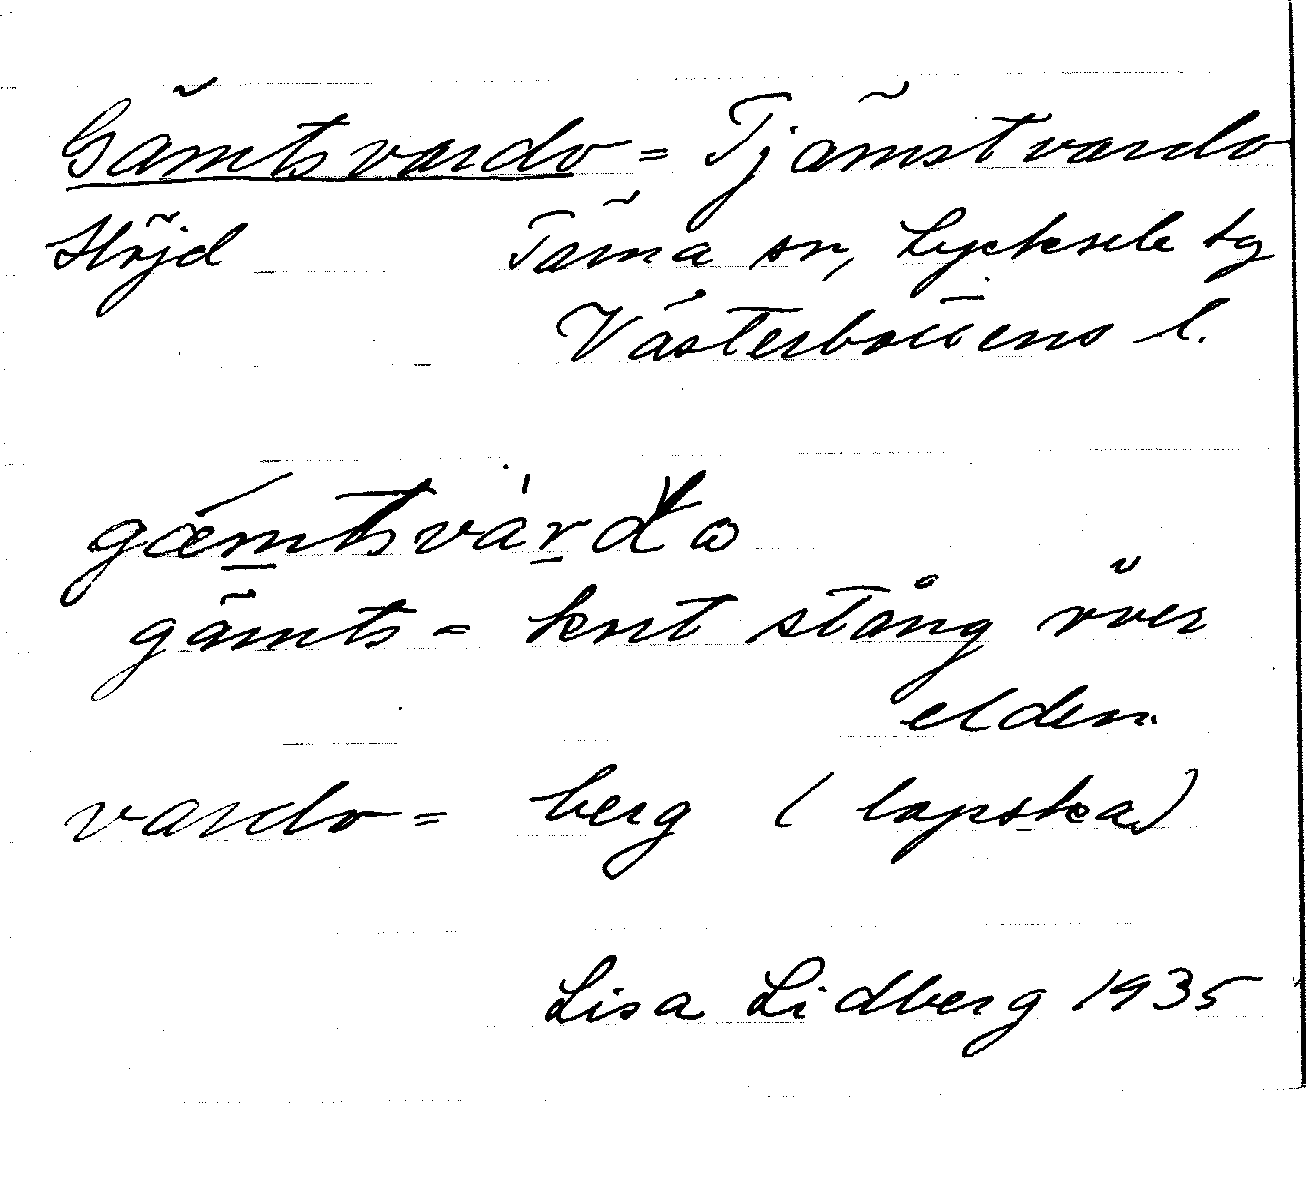 Gämtsvardo = Tjämstvardo
Höjd Tärna sn, Lycksele tg
Västerbottens l.
gǽmtsvàrdω
gämts = krit stång över
elden.
vardo = berg (lapska)
Lisa Lidberg 1935